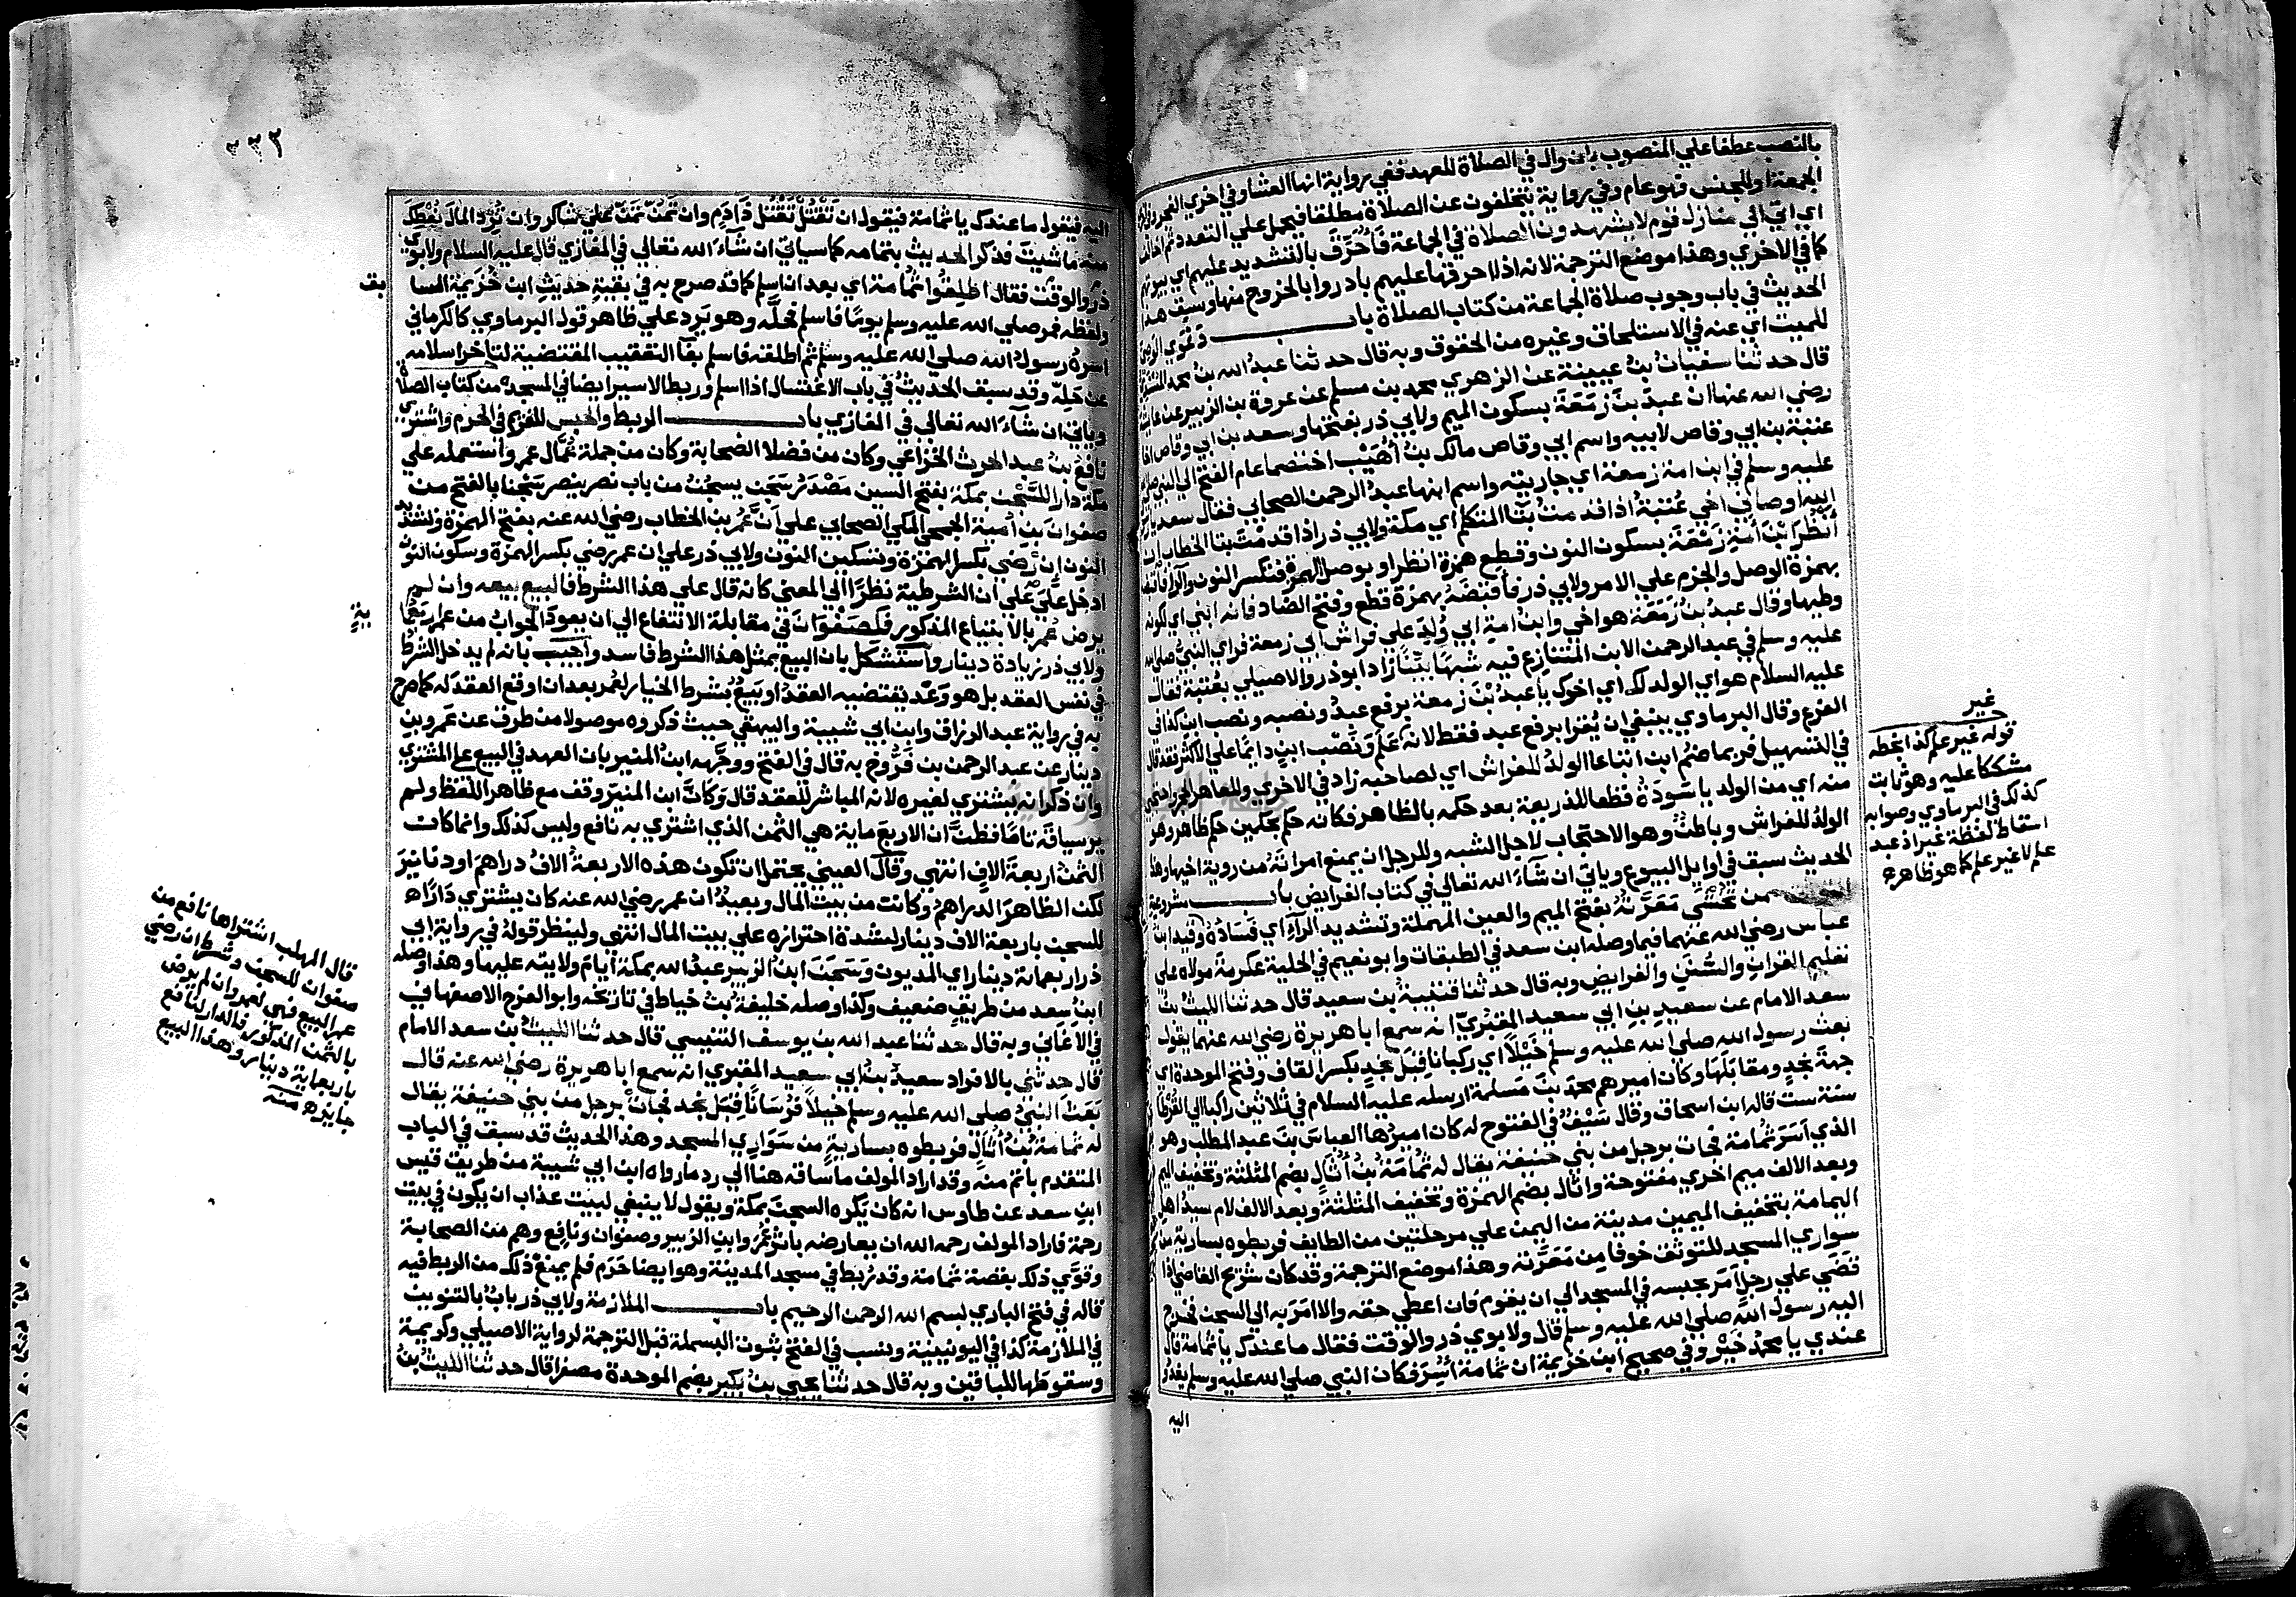 بالنصب عطفا علي المنصوب بان وال في الصلاة للعهد ففي رواية انها العشا وفي اخري الفجر
الجمعة او للجنس فهو عام وفي رواية يتخلفون عن الصلاة مطلقا فيحمل علي التعدد ثم اخالف
اي اتي الي منازل قوم لا يشهدون الصلاة في الجماعة فَأُحَرِّقَ بالتشديد عليهم اي بيوتهم
كما في الاخري وهذا موضع الترجمة لانه اذا احرقها عليهم بادروا بالخروج منها وسبق هذا
الحديث في باب وجوب صلاة الجماعة من كتاب الصلاة باب دَعْوَي الوصي
للميت اي عنه في الاستلحاق وغيره من الحقوق وبه قال حدثنا عبدُ الله بنُ محمد
قال حدثنا سفيانُ بنُ عيينة عن الزهري محمد بن مسلم عن عروة بن الزبير عن عائشة
رضي الله عنها ان عبدَ بنَ زَمْعَةَ بسكون الميم ولابي ذر بفتحها وسعد بن ابي وقاص
عتبة بن ابي وقاص لابيه واسم ابي وقاص مالك بنُ أُهَيْب اختصما عام الفتح الي النبي صلي الله
عليه وسلم في ابن امة زمعة اي جاريته واسم ابنها عبدُ الرحمن الصحابي فقال سعد يا رسول
الله اوصاني اخي عُتبةُ اذا قدمتُ بتا المتكلم اي مكة ولابي ذر اذا قدمْتَ بتا الخطاب ان
أَنْظُرَ ابْنَ أَمَةِ زَمْعَةَ بسكون النون وقطع همزة انظر او بوصل الهمزة فتكسر النون
بهمزة الوصل والجزم علي الامر ولابي ذر فأَقبِضَهُ بهمزة قطع وفتح الضاد فانه ابني اي لكونه
وطيها وقال عبدُ بنُ زَمْعَةَ هو اخي وابنُ امةِ ابي وُلِدَ علي فراش ابي زمعة فراي النبيُّ صلي الله
عليه وسلم في عبد الرحمن الابن المتنازع فيه شبهًا بيّنًا زاد ابو ذر والاصيلي بعُتبة فقال
عليه السلام هو اي الولد لك اي اخوك يا عبدُ بْنَ زمعة برفع عبدُ ونصبه ونصب ابن كذا في
الفرع وقال البرماوي ينبغي ان يُقرا برفع عبد فقط لانه عَلَم ونَصْب ابنٍ دائمًا علي الاكثر فقد قال
في التسهيل فربما ضُم ابن اتباعا الولدُ للفراش اي لصاحبه زاد في الاخري وللعاهر الحجر احتجبي
منه اي من الولد يا سَوْدَةُ قطعا للذريعة بعد حكمه بالظاهر فكانه حَكَم بحكمين حكم ظاهر وهو
الولدُ للفراش وباطنٍ وهو الاحتجاب لاجل الشبه وللرجل ان يمنع امراتهُ من روية اخيها وهذا
الحديث سبق في اوايل البيوع وياتي ان شاءَ الله تعالي في كتاب الفرايض باب مشروعية
من تُخْشَي مَعَرَّتُهُ بفتح الميم والعين المهملة وتشديد الرآءِ اي فَسَادُهُ وقيد ابنُ
عباس رضي الله عنهما فيما وصله ابن سعد في الطبقات وابو نعيم في الحلية عكرمة مولاه علي
تعليم القران والسُّنَنِ والفرايضِ وبه قال حدثنا قتيبةُ بن سعيد قال حدثنا الليثُ بن
سعد الامام عن سعيدِ بنِ ابي سعيد المقبُريّ انه سمع ابا هريرة رضي الله عنهما يقول
بعث رسول الله صلي الله عليه وسلم خَيْلاً اي ركبانا قِبَلَ نجدٍ بكسر القاف وفتح الموحدة اي
جهةَ نجدٍ ومقابَلَها وكان اميرهم محمد بنَ مسلمة ارسله عليه السلام في ثلاثين راكبا الي القُرَطا
سنة ست قاله ابن اسحاق وقال سَيْفٌ في الفتوح له كان اميرُها العباسَ بنَ عبد المطلب وهو
الذي اَسَرَ ثمامة فجات برجل من بني حنيفة يقال له ثُمَامَةُ بنُ أُثَالٍ بضم المثلثة وتخفيف الميم
وبعد الالف ميم اخري مفتوحة واثال بضم الهمزة وتخفيف المثلثة وبعد الالف لام سيدُ اهل
اليمامة بتخفيف الميمين مدينة من اليمن علي مرحلتين من الطايف فربطوه بسارية من
سواري المسجد للتوثق خوفا مِن مَعَرَّته وهذا موضع الترجمة وقد كان شُرَيح القاضي اذا
قضي علي رجلٍ اَمَرَ بحبسه في المسجد الي ان يقوم فان اعطي حقه والا امَرَ به الي السجن فخرج
اليه رسول الله صلي الله عليه وسلم قال ولابوي ذر والوقت فقال ما عندك يا ثمامة قال
عندي يا محمد خَيْر وفي صحيح ابن خزيمة ان ثمامة أُسِرَ فكان النبي صلي الله عليه وسلم يغدُو
اليه
غير
قوله غير علم كذا بخطه
مشككا عليه وهو ثابت
كذلك في البرماوي وصوابه
اسقاط لفظة غير اذ عبد
علم لا غير علم كما هو ظاهر ه
٢٢٣
اليه فيقول ما عندك يا ثمامة فيقول ان تَقْتُلْ تَقْتُل ذَا دَمٍ وان تَمُنَّ تَمُنَّ علي شاكر وان تُرِد المالَ نُعْطِكَ
منه ما شيتَ فذكر الحديث بتمامه كما سياتي ان شاءَ الله تعالي في المغازي قال عليه السلام ولابوي
ذر والوقت فقال اطلِقُوا ثُمامة اي بعد ان اسلم كما قد صرح به في بقيةِ حديثِ ابن خُزَيمَة السا
بق
ولفظه فمر صلي الله عليه وسلم يومًا فاسلم فحلَّه وهو يَرِد علي ظاهر قول البرماوي كالكرماني
اسرهُ رسولُ الله صلي الله عليه وسلم ثم اطلقه فاسلم بفآ التعقيب المقتضية لتاخر اسلامه
عن حَلِّه وقد سبق الحديثُ في باب الاغتسال اذا اسلم وربط الاسير ايضا في المسجد من كتاب الصلاة
وياتي ان شاءَ الله تعالي في المغازي باب الربط والحبس للغريم في الحرم واشتري
نافع بنُ عبد الحرث الخزاعي وكان من فضلا الصحابة وكان من جملة عُمَّال عمر واستعمله علي
مكة دارا للسَّجْن بمكة بفتح السين مَصْدَرُ سَجَن يسجُنُ من باب نصر ينصر سَجْنا بالفتح من
صفوان بنِ اُمية الجمحي المكي الصحابي علي اَنّ عُمر بن الخطاب رضي الله عنه بفتح الهمزة وتشديد
النون اِنْ رَضي بكسر الهمزة وتسكين النون ولابي ذر علي ان عمر رضي بكسر الهمزة وسكون النون
ادخل علَي علي ان الشرطية نظرًا الي المعني كانه قال علي هذا الشرط فالبيع بيعه وان لم
يرض عُمر بالابتياع المذكور فلصَفْوَانَ في مقابلة الانتفاع الي ان يعودَ الجوابُ من عمر اربَعُما
يةٍ
ولابي ذر زيادة دينار واستشكل بان البيع بمثل هذا الشرط فاسد واجيب بانه لم يدخل الشرط
في نفس العقد بل هو وَعْد يقتضيه العقدُ او بَيْعٌ بشرط الخيار لعُمر بعد ان اوقع العقد له كما صرح
به في رواية عبد الرزاق وابن ابي شيبة والبيهقي حيث ذكروه موصولا من طرق عن عَمرو بنِ
دينار عن عبد الرحمن بن فَرُّوخ به قال في الفتح ووجَّهه ابنُ المنير بان العهد في البيع علي المشتري
وان ذكر انه يشتري لغيره لانه المباشر للعقد قال وكانَّ ابن المنيّر وقف مع ظاهر اللفظ ولم
ير سياقَه تامًا فظنَّ ان الاربعَ ماية هي الثمن الذي اشتري به نافع وليس كذلك وانما كان
الثمنُ اربعةَ الافٍ انتهي وقال العيني يحتمل ان تكون هذه الاربعةُ الافُ دراهمَ او دنانيرَ
لكن الظاهرَ الدراهمُ وكانت من بيت المال وبعيدٌ ان عمر رضي الله عنه كان يشتري دَارًا ه
للسجن باربعة الاف دينار لشدة احترازه علي بيت المال انتهي ولينظر قولهُ في رواية ابي
ذر اربعماية دينار اي المديون وسَجَنَ ابنُ الزبير عبدُ الله بمكة ايامَ ولايته عليها وهذا وصله
ابنُ سعد من طريق ضعيف وكذا وصله خليفةُ بن خياط في تاريخه وابو الفرج الاصفهاني
في الاغاني وبه قال حدثنا عبد الله بن يوسف التنيسي قال حدثنا الليثُ بن سعد الامام
قال حدثني بالافراد سعيدُ بنُ ابي سعيد المقبري انه سمع ابا هريرة رضي الله عنه قال
بَعَثَ النبيُّ صلي الله عليه وسلم خيلاً فُرْسَانًا قِبَلَ نجد فجات برجل من بني حنيفة يقال
له ثمامة بنُ أُثَالٍ فربطوه بساريةٍ من سَوَارِي المسجد وهذا الحديث قد سبق في الباب
المتقدم باتم منه وقد اراد المولف ما ساقه هنا الي رد ما رواه ابن ابي شيبة من طريق قيس
ابنِ سعد عن طاوس انه كان يكره السجنَ بمكة ويقول لا ينبغي لبيت عذاب ان يكون في بيت
رحمة فاراد المولف رحمه الله ان يعارضه باثر عُمَر وابنِ الزبير وصفوان ونافِع وهم من الصحابة
وقَوَّي ذلك بقصة ثمامة وقد رُبط في مسجد المدينة وهو ايضا حَرَم فلم يمنعْ ذلك من الربط فيه
قاله في فتح الباري بسم الله الرحمن الرحيم باب الملازمة ولابي ذر بابٌ بالتنوين
في الملازمة كذا في اليونينية ونسب في الفتح ثبوت البسملة قبل الترجمة لرواية الاصيلي وكريمة
وسقوطها للباقين وبه قال حدثنا يحيي بنُ بُكير بضم الموحدة مصغرا قال حدثنا الليثُ بنُ
قال المهلب اشتراها نافع من
صفوان للسجن وشرط ان رضي
عمر البيع فهي لعمر وان لم يرض
بالثمن المذكور فالدار لنافع
باربعماية دينار وهذا البيع
جايز ه منه